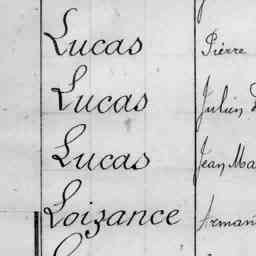 Lucas Pierre
Lucas Julien
Lucas Jean Ma
Loizance Arman